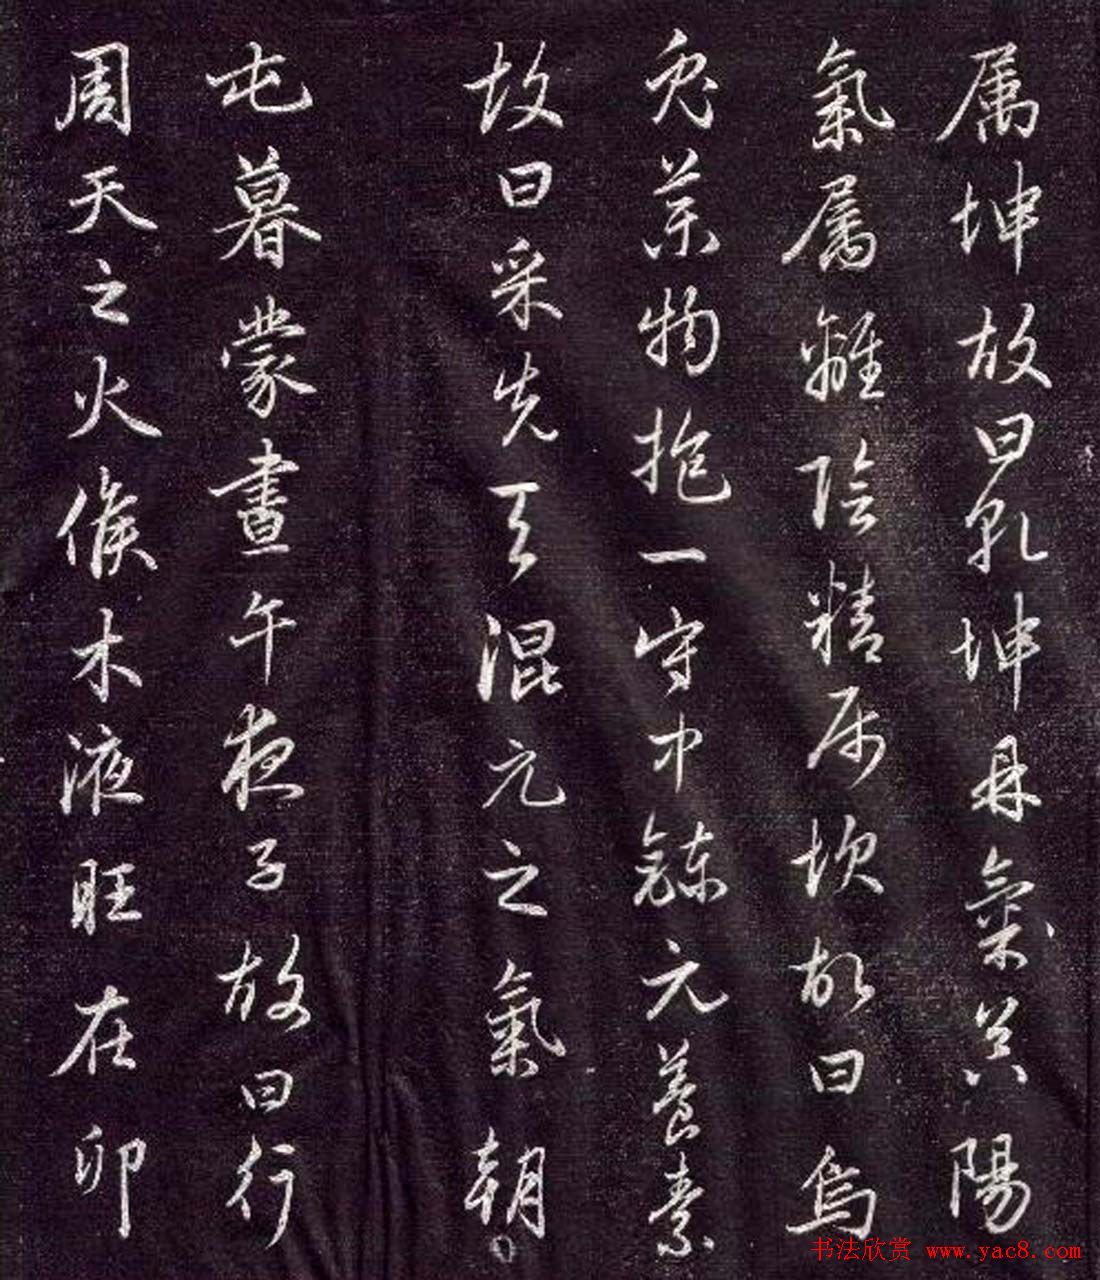 属坤故曰乾坤鼎氣器陽
氣属離陰精属坎故曰烏
兔藥物抱一守中鍊元養素
故曰采先天混元之氣朝
屯暮蒙晝午夜子故曰行
周天之火候木液旺在卯
书法欣赏 www.yac8.com